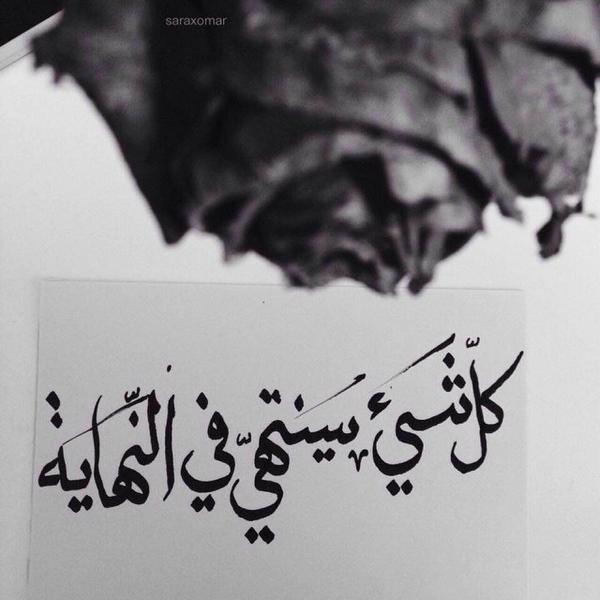 saraxomar
كلّ شيئ سينتهيّ في النّهاية